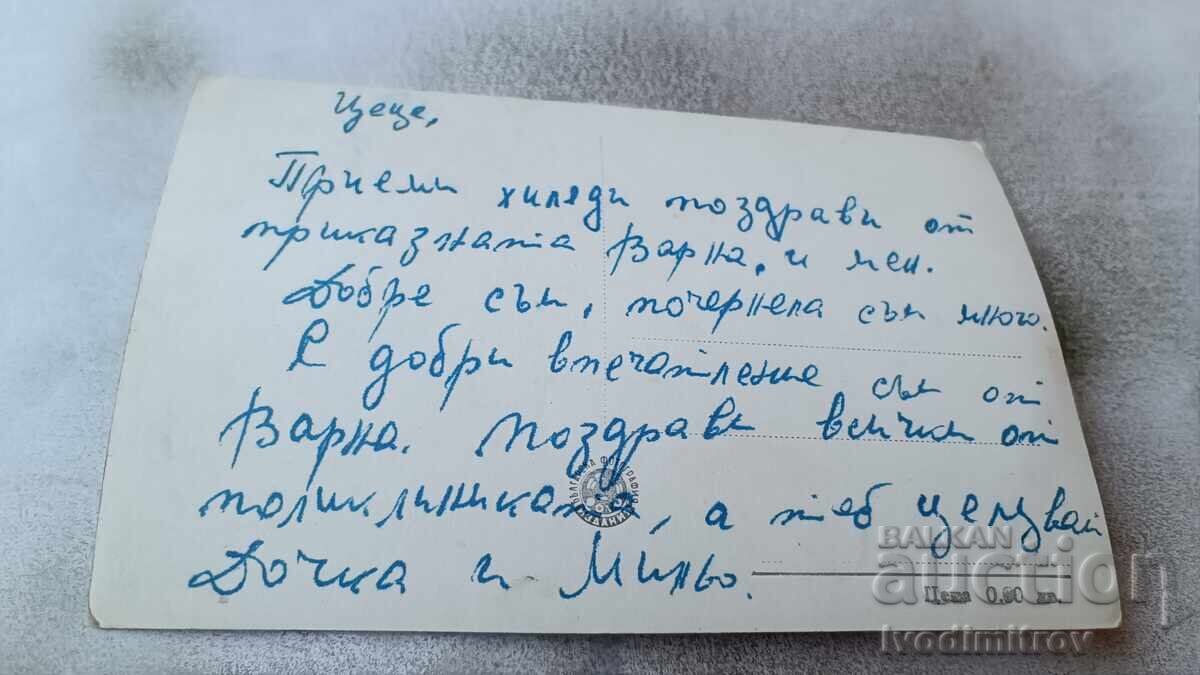 Цеце,
Приеми хиляди поздрави от
приказната Варна, и мен.
Добре съм, почерняла съм много.
С добри впечатление съм от
Варна. Поздрави всички от
поликлиниката, а теб целуват
Дочка и Миньо.
БЪЛГАРСКА ФОТОГРАФИЯ
ИЗДАНИЯ
Цена 0,90 лв.
BALKAN
auction
Ivodimitrov